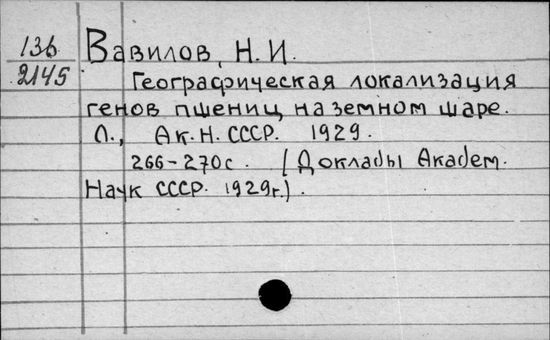 136
2145
Вавилов, Н. И.
Географическая локализация
генов пшениц на земном шаре.
Л., Ак. Н. СССР. 1929.
266-270 с. (Доклады Академ.
Наук СССР. 1929г.).